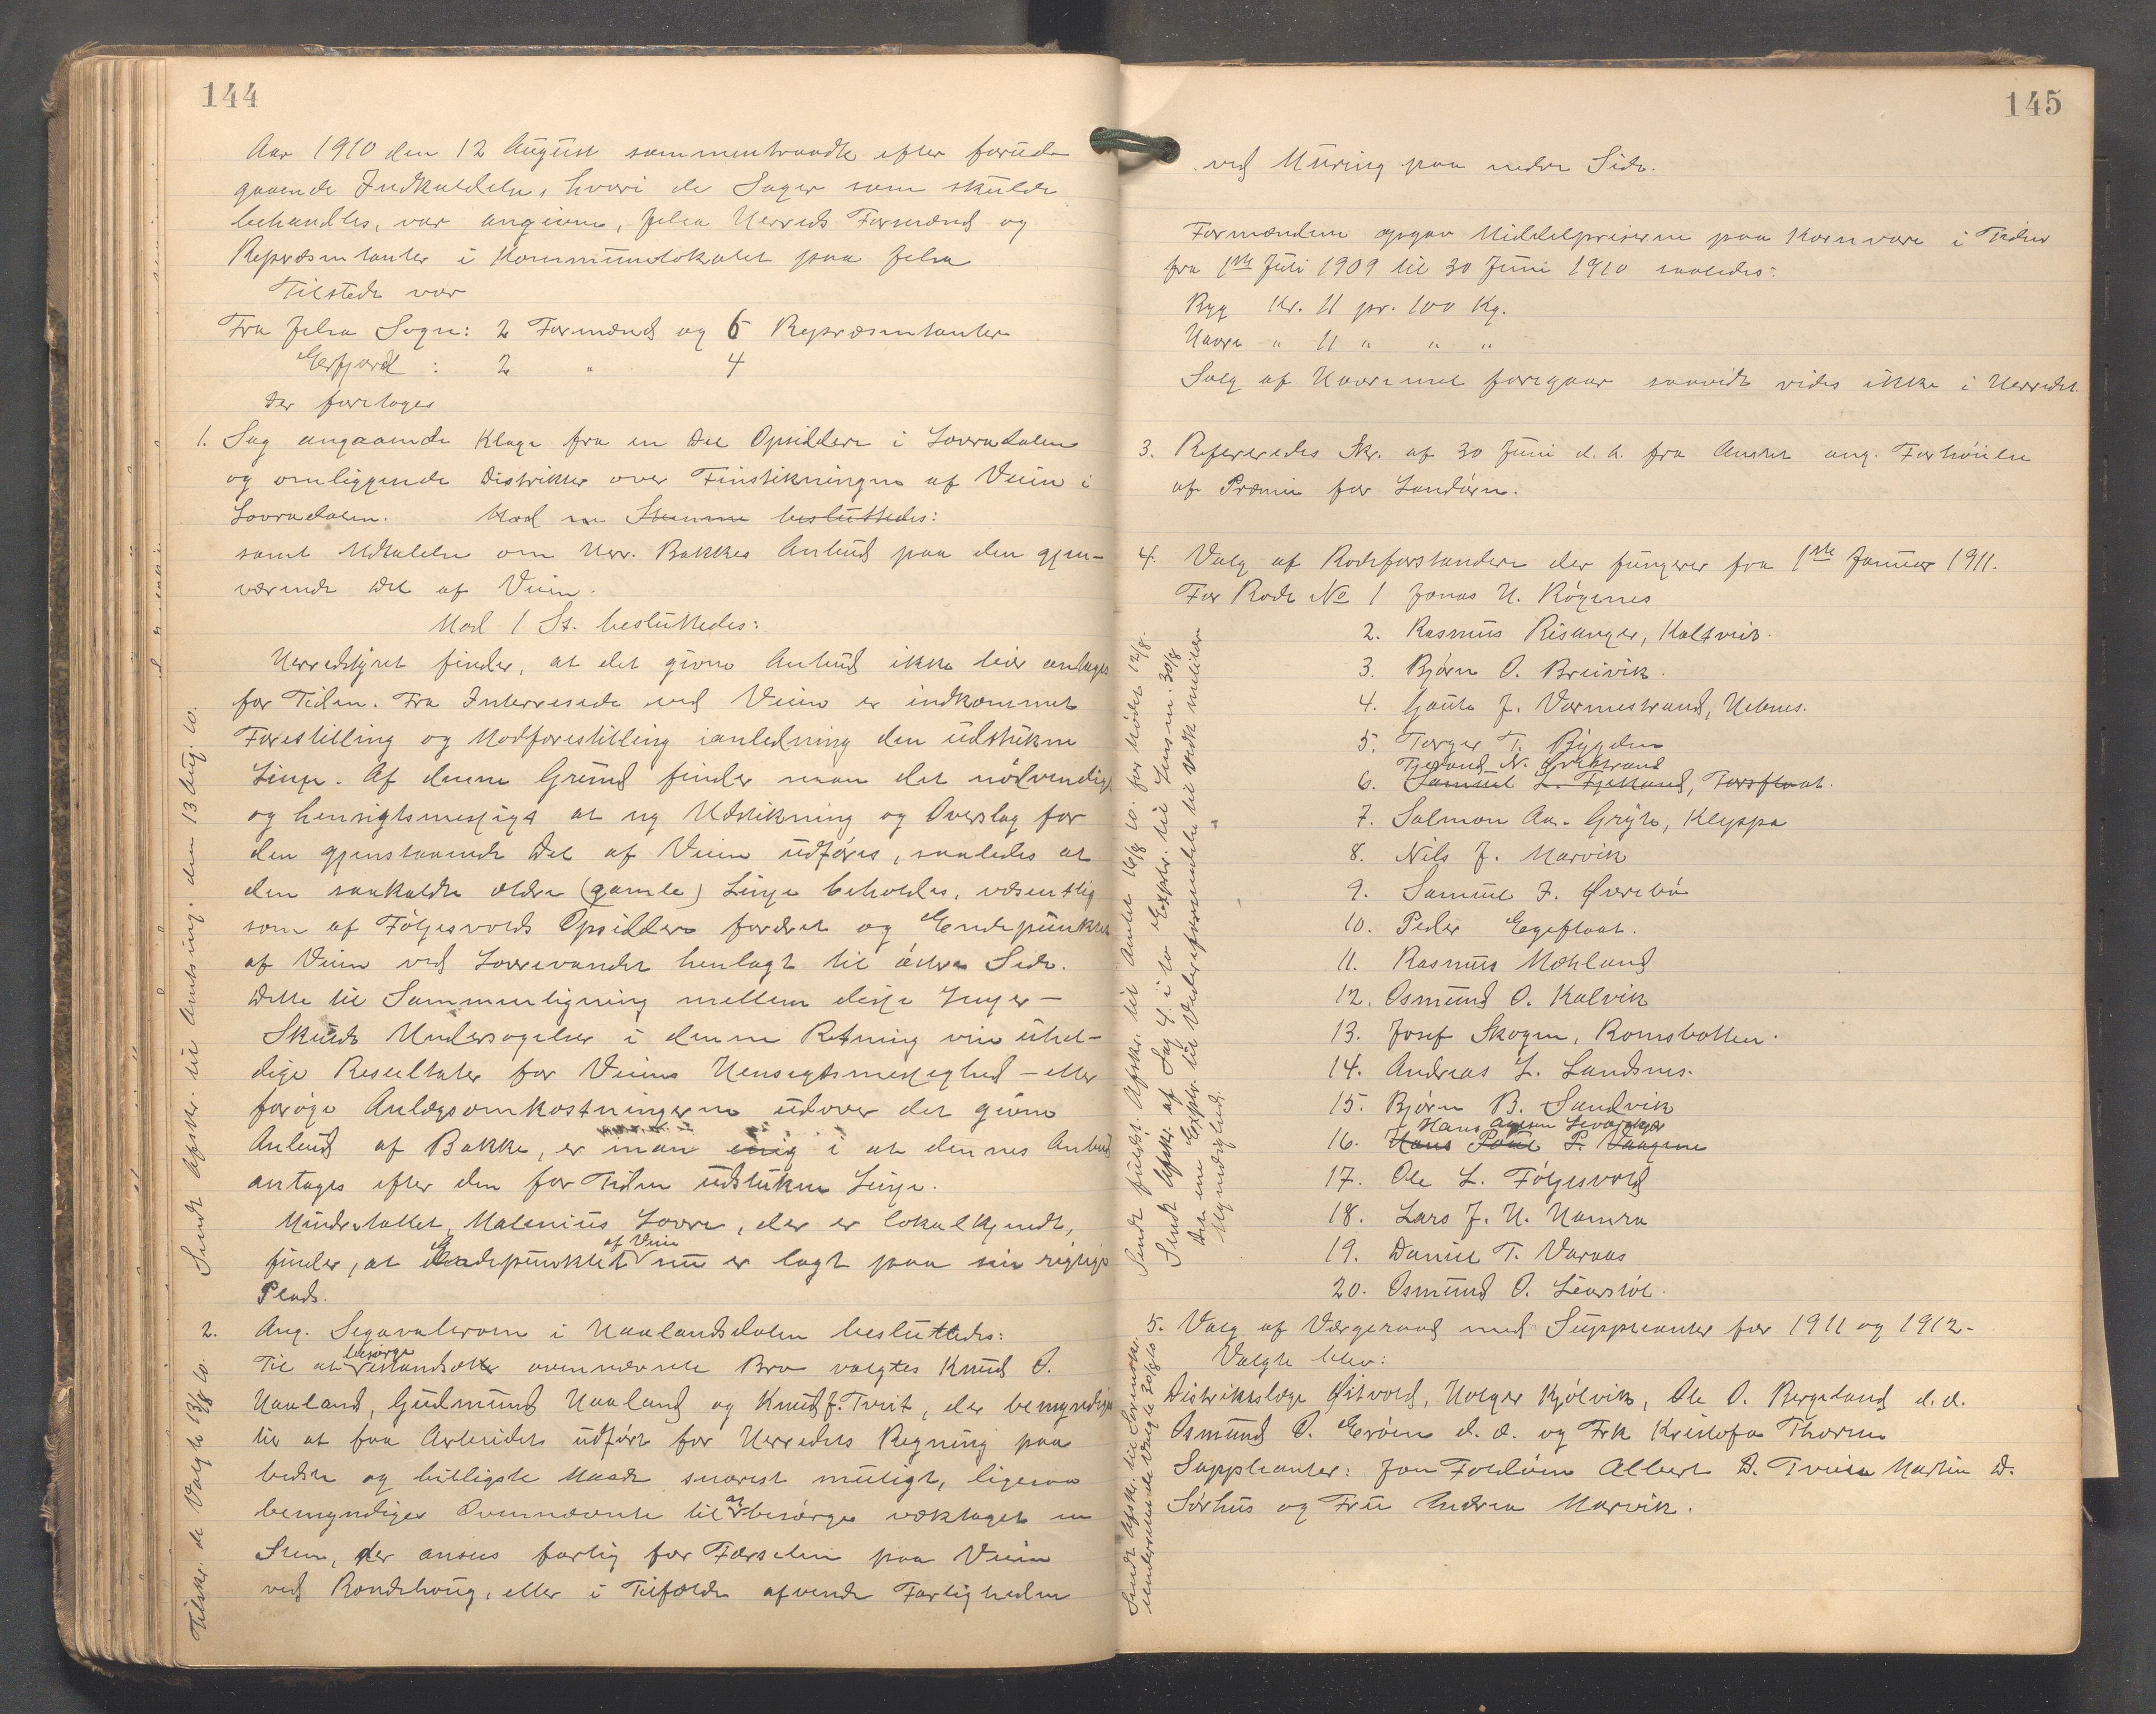 144
Aar 1910 den 12 August sammentraadte efter foruda
gaaende Indkaldelse, hvori de Sager som skulde
behandles, var angivne, Jelsa Herreds Formænd og
Repræsentanter i Kommunelokalet paa Jelsa
Tilstede var
Fra Jelsa Sogn: 2 Formænd og 6 Repræsentanter
Erfjord : 2 " 4
Der foretoges
1. Sag angaaende Klage fra en Del Opsiddere i Lovradalen
og omliggende Distrikter over Finstikningen af Veien i
Lovradalen. Mod en Stemme besluttedes:
samt Udtalelse om Herr. Bakkes Anbud paa den gjen-
værende Del af Veien.
Mod 1 St. besluttedes:
Herredstyret finder, at det givne Anbud ikke bør antages
for Tiden. Fra Interresede ved Veien er indkommet
Forestilling og Modforestilling ianledning den udstukne
Linje. Af denne Grund finder man det nødvendigt
og hensigtsmessigt at ny Udstikning og Overslag for
den gjenstaaende Del af Veien udføres, saaledes at
den saakaldte ældre (gamle) Linje beholdes, væsentlig
som af Følgesvolds Opsiddere fordret og Endepunktet
af Veien ved Lovrevandet henlagt til østre Side.
Dette til Sammenligning mellem disse Linjer –
Skulde Undersøgelser i denne Retning vise uhel-
dige Resultater for Veiens Hensigtsmessighed – eller
forøge Anlægsomkostningerne udover det givne
Anbud af Bakke, er man enig i at dennes Anbud
antages efter den for Tiden udstukne Linje.
Mindretallet, Malenius Lovre, der er lokalkjendt,
finder, at Endepunktet af Veien nu er lagt paa sin rigtige
Plads.
2. Ang. Segavaleroen i Haalandsdalen besluttedes:
Til at besørge istandsætte ovennævnte Bro valgtes Knud O.
Haaland, Gudmund Haaland og Knud J. Tveit, der bemyndiges
til at faa Arbeidet udført for Herredets Regning paa
bedste og billigste Maade snarest muligt, ligesaa
bemyndiges Ovennævnte til at besørge væktaget en
Sten, der ansees farlig for Færselen paa Veien
ved Randehoug, eller i Tilfælde afvende Farligheden
Sendt Afskr. til Amtsing. den 13 Aug. 10.
Tilskr. de Valgte 13/8 10.
145
ved Muring paa nedre Side.
Formændene opgav Middelpriserne paa Kornvare i Tiden
fra 1ste Juli 1909 til 30 Juni 1910 saaledes:
Byg Kr. 11 pr. 100 Kg.
Havre " 11 " " "
Salg af Havremel foregaar saavidt vides ikke i Herredet.
3. Refereredes Skr. af 30 Juni d. A. fra Amtet ang. Forhøielse
af Præmie for Landørn.
4. Valg af Rodeforstandere der fungerer fra 1ste Januar 1911.
For Rode No 1 Jonas H. Røgenes
2. Rasmus Risanger, Kaltveit.
3. Bjørn O. Breivik.
4. Gaute J. Varmestrand, Hebnes.
5. Torger T. Bygden
Tjerand N. Ørestrand
6. Samuel L. Fjelland, Forsfloat.
7. Salmon Aa. Gryte, Kleppa
8. Nils J. Marvik
9. Samuel J. Øverebø
10. Peder Egefloat.
11. Rasmus Mæhland
12. Osmund O. Kalvik
13. Josef Skogen, Romsbotten.
14. Andreas L. Landsnes.
15. Bjørn B. Sandvik
Hans Levarskjær
16. Hans Poul P. Vaagene
17. Ole L. Følgesvold
18. Lars J. H. Hamra
19. Daniel T. Varaas
20. Osmund O. Leirstøl.
5. Valg af Værgeraad med Suppleanter for 1911 og 1912-
Valgte blev:
Distriktslæge Øitvold, Holger Kjølvik, Ole O. Bergeland d. d.
Osmund O. Erøen d. d. og Frk Kristofa Thorsen
Suppleanter: Jon Foldøen Albert D. Tveita Martin D.
Sørhus og Fru Andrea Marvik.
Sendt fuldst. Afskr. til Amtet 16/8 10. for Mødet 12/8.
Sendt Afskr. af Sag 4. i to Expl. til Lensm. 30/8
Det ene Expl. til Vedkommende militære
Myndighed.
Sendt Afskr. til Sorenskr.
underrettet de Valgte 30/8 10